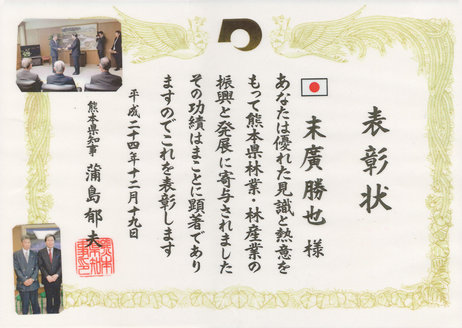 表彰状
末廣勝也 様
あなたは優れた見識と熱意を
もって熊本県林業・林産業の
振興と発展に寄与されました
その功績はまことに顕著であり
ますのでこれを表彰します
平成二十四年十二月十九日
熊本県知事 蒲島郁夫